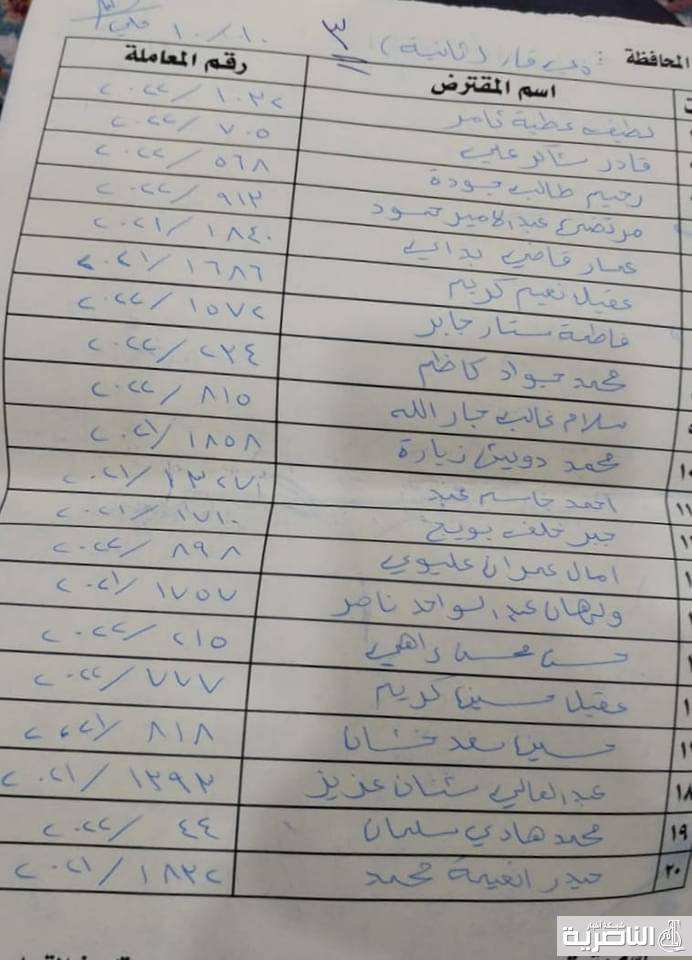 المحافظة : ذي قار (ثانية) ٣ ١٠/١٠
ت اسم المقترض رقم المعاملة
لطيف عطية ثامر ١٠٣٢ / ٢٠٢٢
قادر شاكر علي ٧٠٥ / ٢٠٢٢
رحيم طالب جودة ٥٦٨ / ٢٠٢٢
مرتضى عبد الامير حمود ٩١٣ / ٢٠٢٢
عمار قاضي بداي ١٨٤٠ / ٢٠٢١
عقيل نعيم كريم ١٦٨٦ / ٢٠٢١
فاطمة ستار جابر ١٥٧٢ / ٢٠٢٢
محمد جواد كاظم ٢٣٤ / ٢٠٢٢
سلام غالب جار الله ٨١٥ / ٢٠٢٢
١٠ محمد دويش زيارة ١٨٥٨ / ٢٠٢١
١١ احمد جاسم عبد / ٢٠٢١
جبر خلف بويح ١٧١٠ / ٢٠٢١
امال عمران عليوي ٨٩٨ / ٢٠٢٢
ولهان عبد الواحد ناصر ١٧٥٧ / ٢٠٢١
حسن محسن راهي ٢١٥ / ٢٠٢٢
عقيل حسين كريم ٧٧٧ / ٢٠٢٢
حسين سعد خشان ٨١٨ / ٢٠٢١
١٨ عبد العالي شنان عزيز ١٣٩٣ / ٢٠٢١
١٩ محمد هادي سلمان ٤٤ / ٢٠٢٢
٢٠ حيدر انغيمة محمد ١٨٣٢ / ٢٠٢١
شبكة اخبار
الناصرية